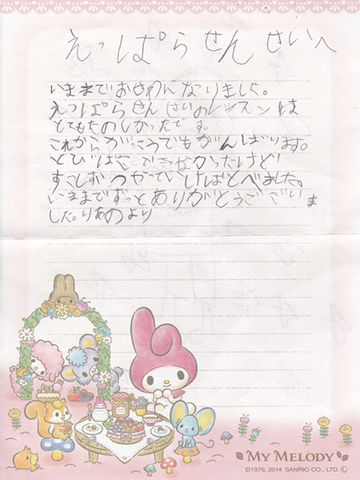 えっぱらせんせいへ
いままでおせわんなりました。
えっぱらせんせいのレッスンは
とてもたのしかったです。
これからがっこうでもがんばります。
とびばこができなかったけど
すこしずつがっていけばとべました。
いままでずっとありがとうございま
した。りあのより
MY MELODY
©1976, 2014 SANRIO CO., LTD.